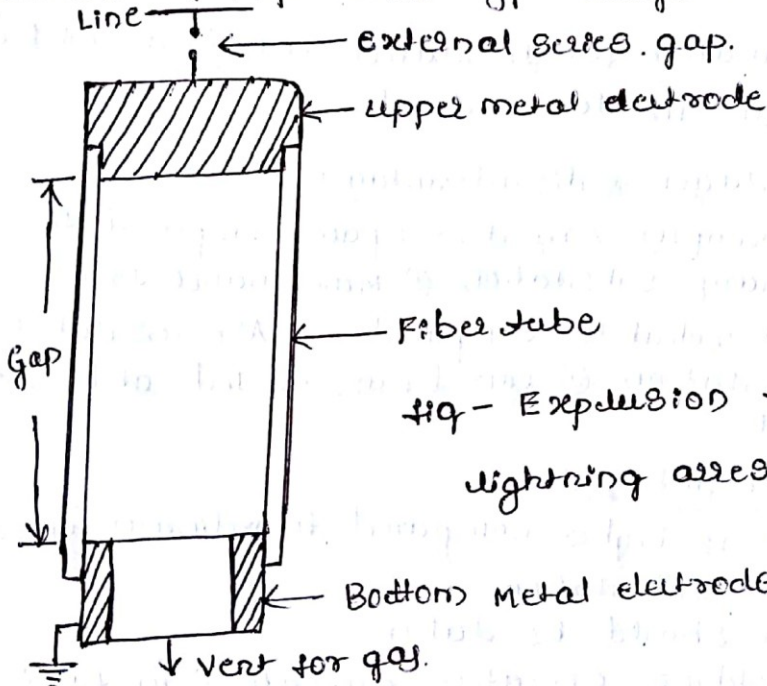 Line
external series. gap.
upper metal electrode
Gap
Fiber tube
fig - Expulsion
lightning arres
Bottom Metal electrode
Vent for gas.